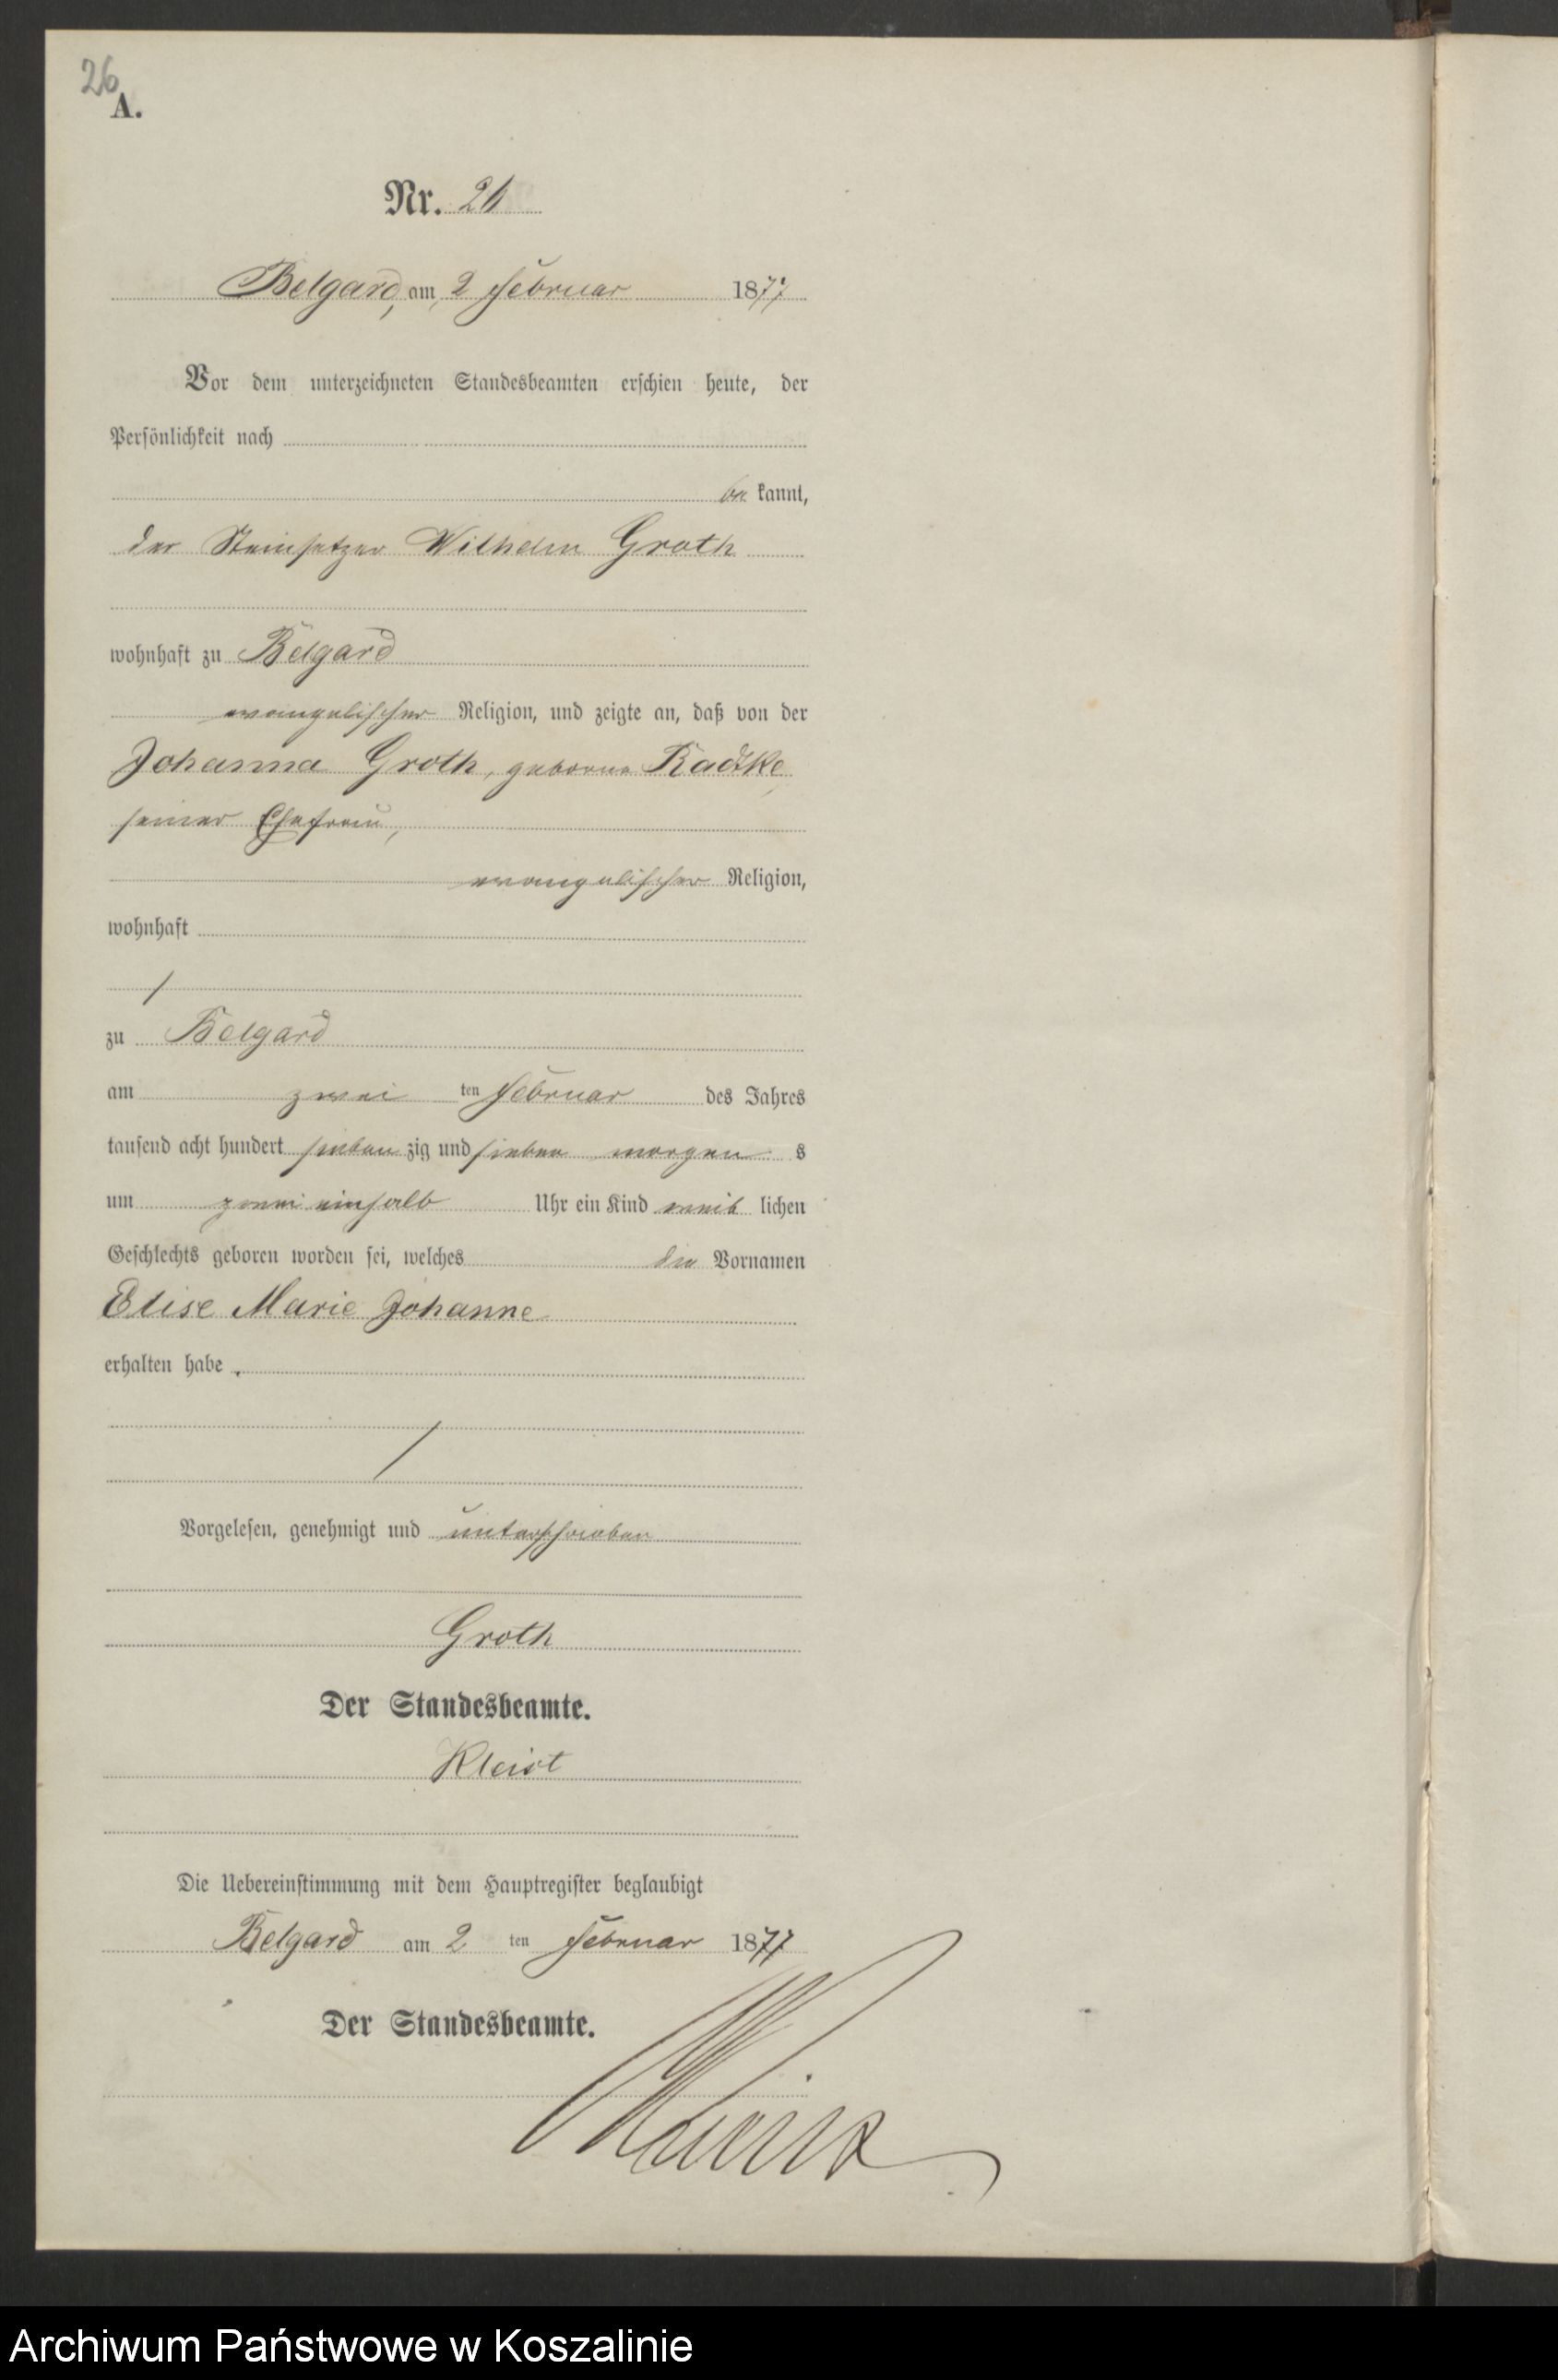 26
A.
Nr. 26
Belgard, am 2 Februar 1877
Vor dem unterzeichneten Standesbeamten erschien heute, der
Persönlichkeit nach
be kannt,
der Steinsetzer Wilhelm Groth
wohnhaft zu Belgard
evangelischer Religion, und zeigte an, daß von der
Johanna Groth, geborne Radtke,
seiner Ehefrau,
evangelischer Religion,
wohnhaft
zu Belgard
am zwei ten Februar des Jahres
tausend acht hundert sieben zig und sieben morgen s
um zwei einhalb Uhr ein Kind weib lichen
Geschlechts geboren worden sei, welches die Vornamen
Elise Marie Johanne
erhalten habe.
Vorgelesen, genehmigt und unterschrieben
Groth
Der Standesbeamte.
Kleist
Die Uebereinstimmung mit dem Hauptregister beglaubigt
Belgard am 2 ten Februar 1877
Der Standesbeamte.
Kleist
Archiwum Państwowe w Koszalinie